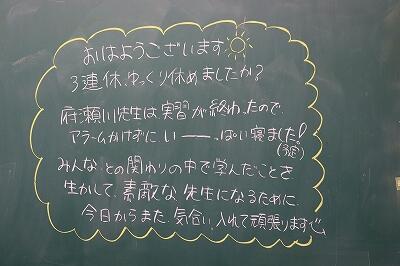 おはようございます
3連休、ゆっくり休めましたか？
府瀬川先生は実習が終わったので、
アラームかけずに、い——、ぱい寝ました!
(予定)
みんなとの関わりの中で学んだことを
生かして、素敵な先生になるために
今日からまた、気合い入れて頑張ります